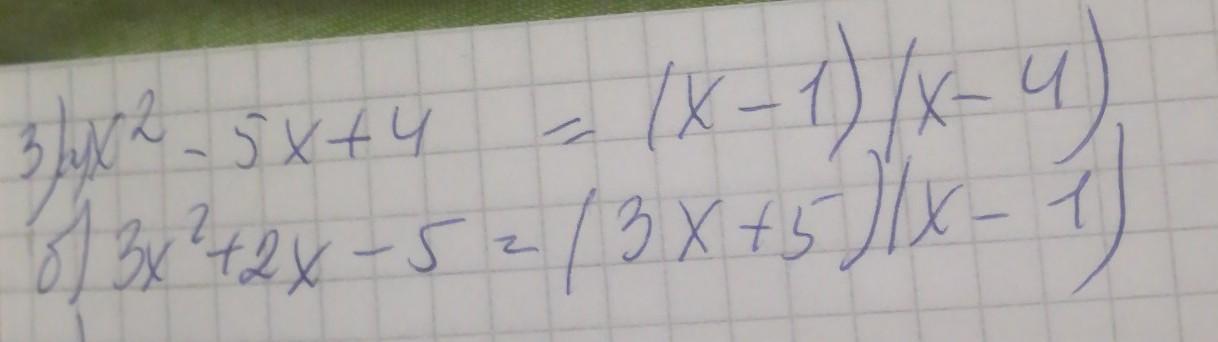 3) x² - 5x + 4 = (x - 1)(x - 4)
б) 3x² + 2x - 5 = (3x + 5)(x - 1)